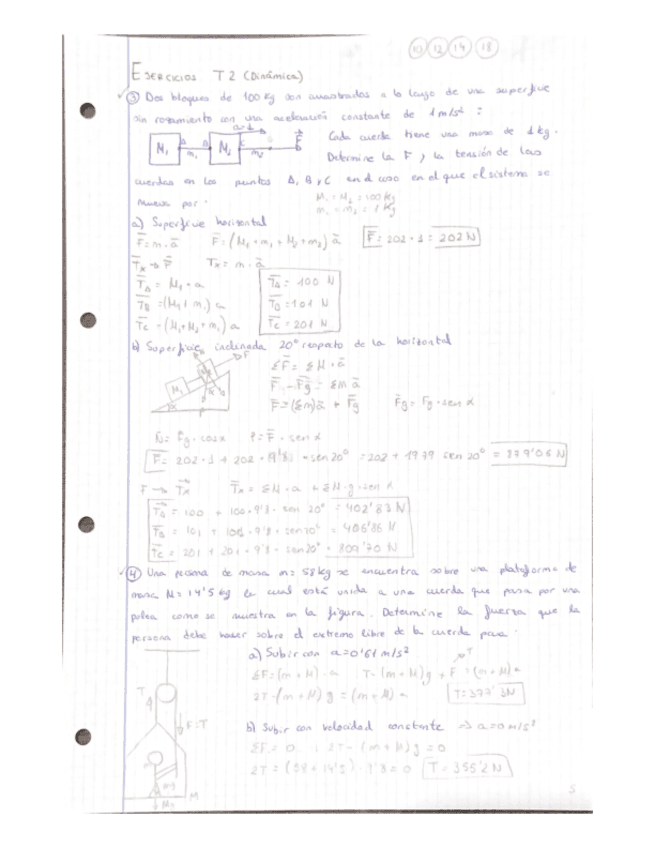 10 12 14 18
EJERCICIOS T2 (Dinámica)
③ Dos bloques de 100 kg son arrastrados a lo largo de una superficie
sin rozamiento con una aceleración constante de 1 m/s² :
Cada cuerda tiene una masa de 1 kg.
M₁ A m₁ B M₂ C m₂ F
Determine la F, y la tensión de las
cuerdas en los puntos A, B y C en el caso en el que el sistema se
mueva por:
M₁ = M₂ = 100 kg
m₁ = m₂ = 1 kg
a) Superficie horizontal
F = m · a F = (M₁ + m₁ + M₂ + m₂) a F = 202 · 1 = 202 N
Tx → F Tx = m · a
TA = M₁ · a TA = 100 N
TB = (M₁ + m₁) a TB = 101 N
TC = (M₁ + M₂ + m₁) a TC = 201 N
b) Superficie inclinada 20° respecto de la horizontal
ΣF = ΣM · a
F - Fg = Σm a
F = (Σm) a + Fg Fg = Fg · sen α
N = Fg · cos α P = F · sen α
F = 202 · 1 + 202 · 9'8 · sen 20° = 202 + 1979 sen 20° = 879'06 N
F → Tx Tx = ΣM · a + ΣM · g · sen α
TA = 100 + 100 · 9'8 · sen 20° = 402'83 N
TB = 101 + 101 · 9'8 · sen 20° = 406'86 N
TC = 201 + 201 · 9'8 · sen 20° = 809'70 N
④ Una persona de masa m = 58 kg se encuentra sobre una plataforma de
masa M = 14'5 kg la cual está unida a una cuerda que pasa por una
polea como se muestra en la figura. Determine la fuerza que la
persona debe hacer sobre el extremo libre de la cuerda para:
a) Subir con a = 0'61 m/s²
ΣF = (m + M) · a T - (m + M) g + F = (m + M) a
2T - (m + M) g = (m + M) a T = 377'3 N
T F = T
b) Subir con velocidad constante ⇒ a = 0 m/s²
ΣF = 0 ; 2T - (m + M) g = 0
2T = (58 + 14'5) · 9'8 = 0 T = 355'2 N
M
5